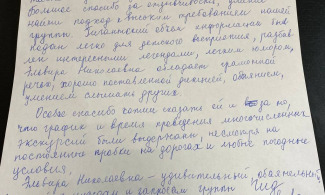 большое спасибо за отзывчивость, умение
найти подход к высоким требованиям нашей
группы. Гигантский объем информации был
подан легко для детского восприятия, разбав-
лен интересными легендами, легким юмором,
Эльвира Николаевна обладает грамотной
речью, хорошо поставленной дикцией, обаянием,
умением слышать других.
Особое спасибо хотим сказать ей и за то,
что график и время проведения многочисленных
экскурсий были выдержаны, несмотря на
постоянные пробки на дорогах и любые погодные
условия.
Эльвира Николаевна - удивительный, обаятельный
и запросам группы гид